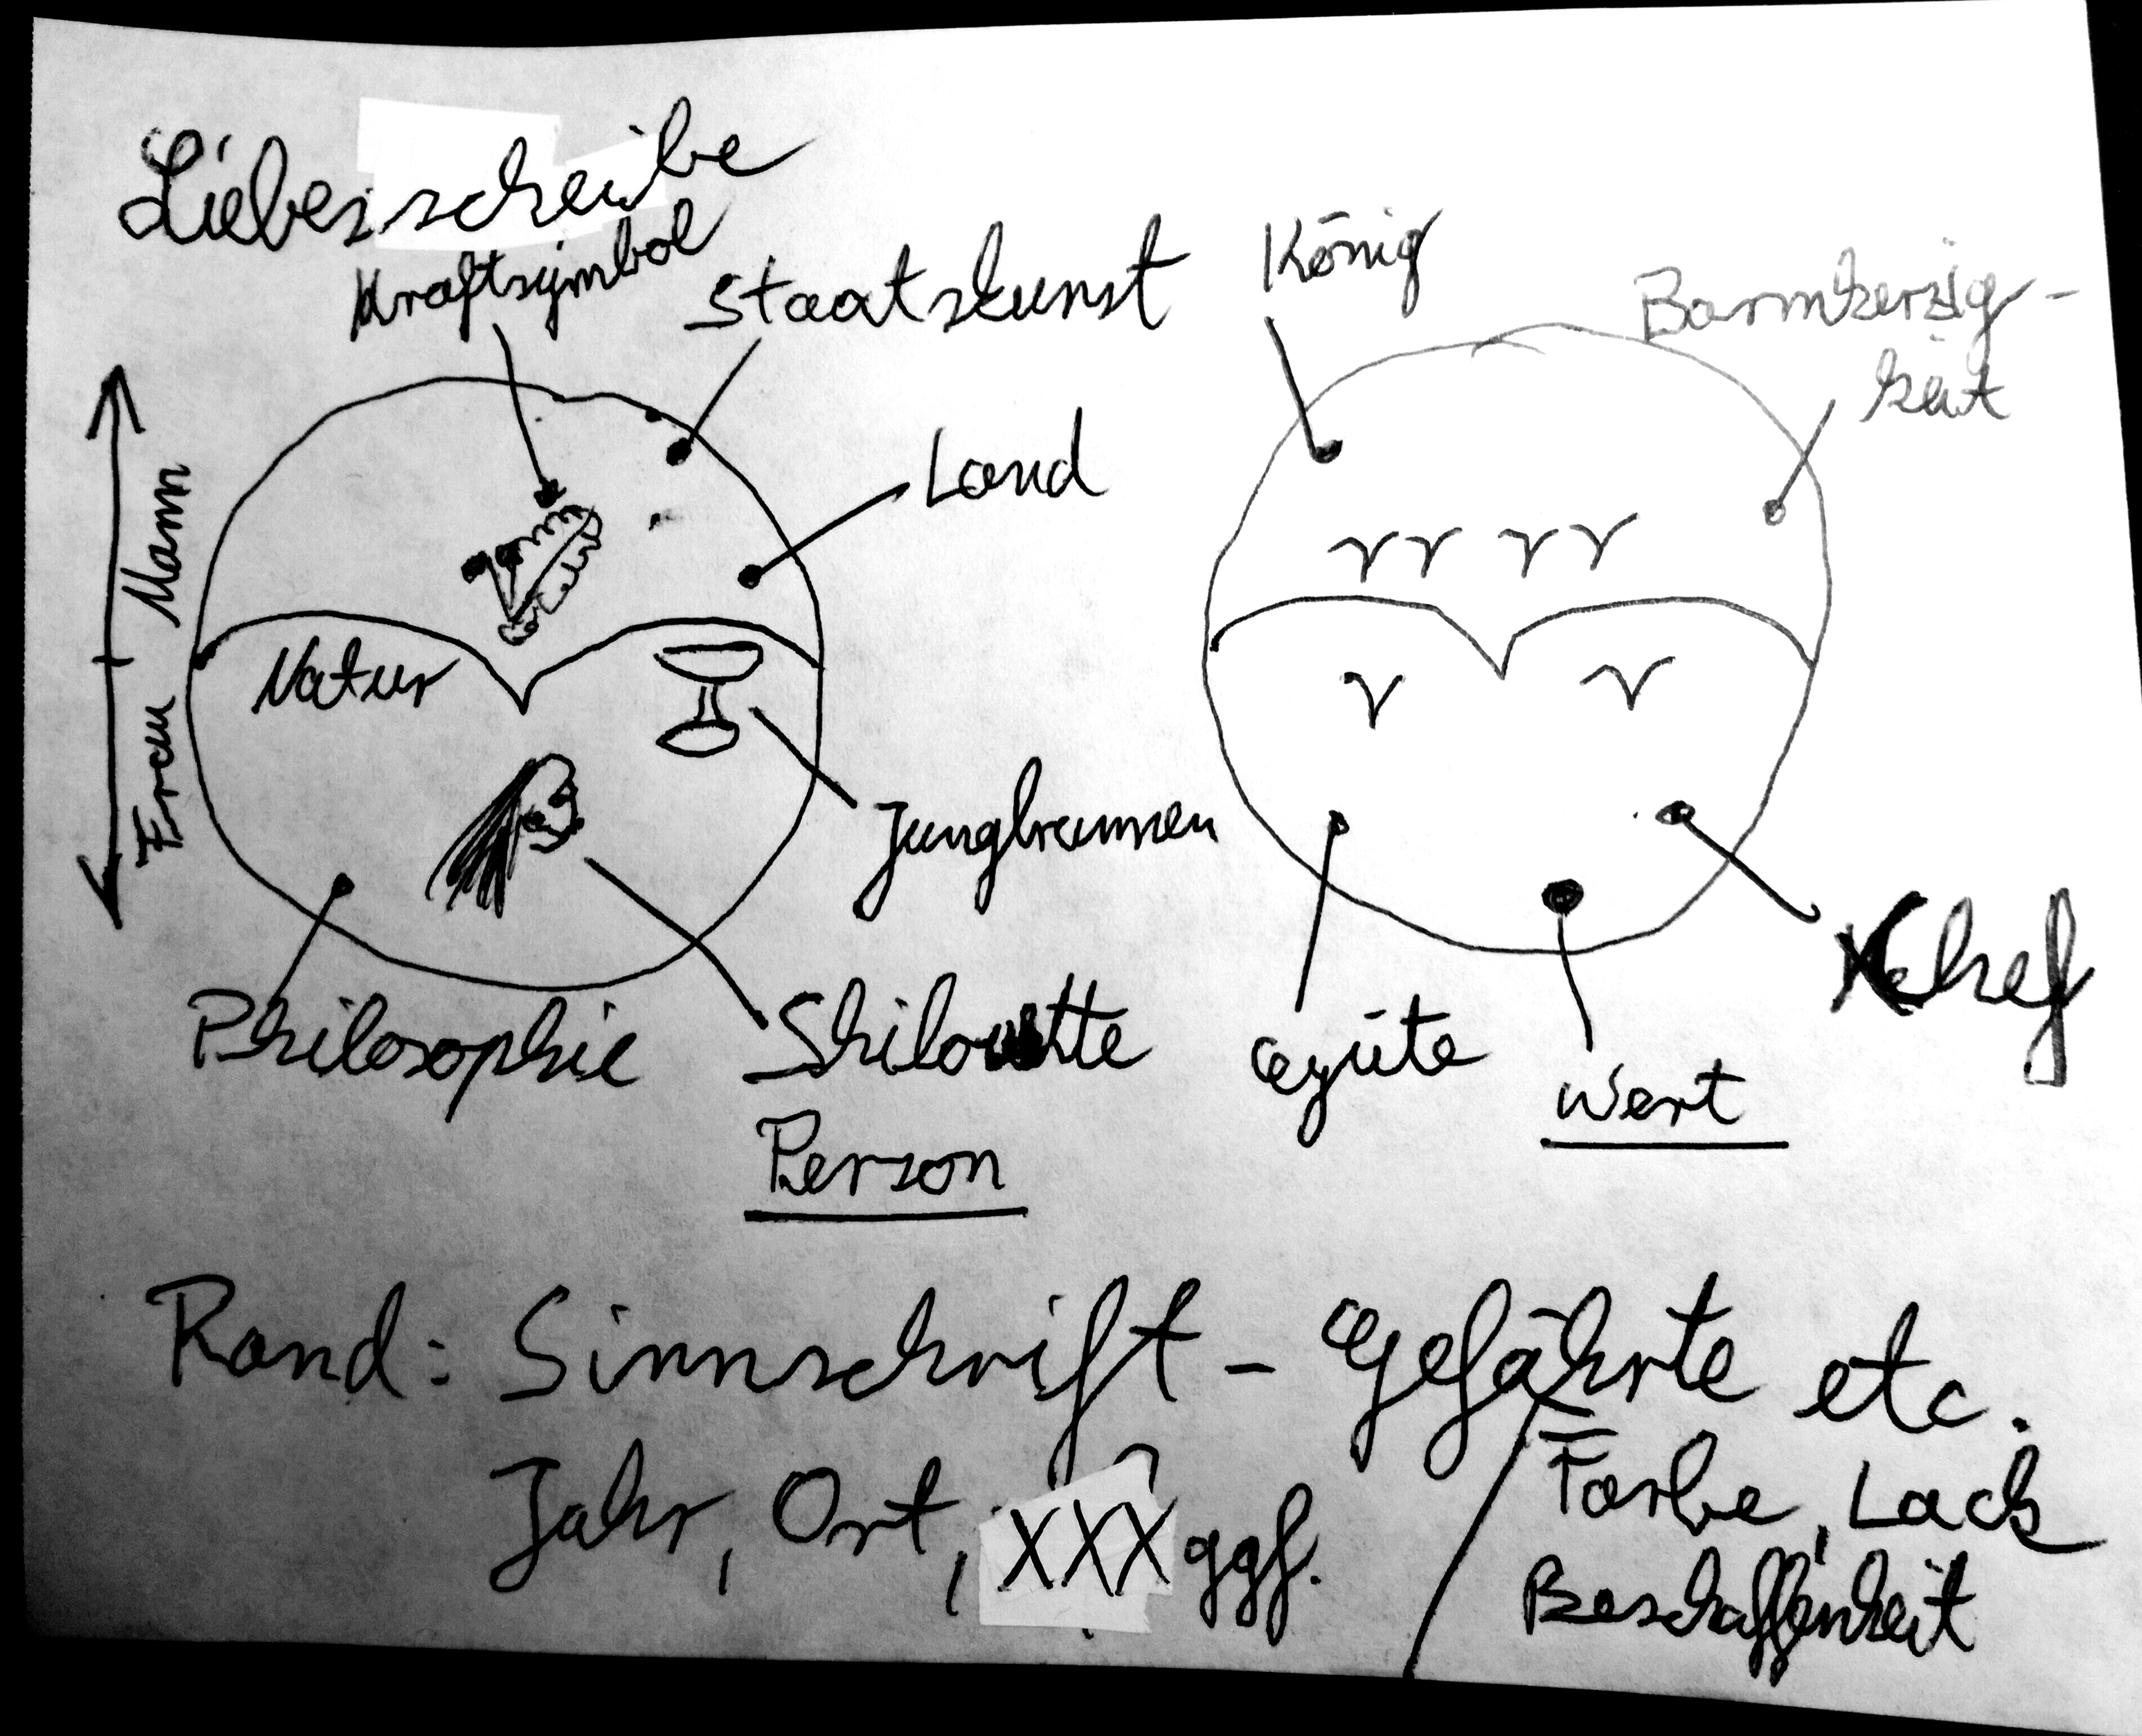 Liebesscheibe
Kraftsymbol
Staatskunst
König
Barmherzig-
keit
Land
Mann
Frau
Natur
Jungbrunnen
Philosophie
Shilouette
Person
Güte
Wert
Rand: Sinnschrift - Gefährte etc.
Jahr, Ort, XXX ggf.
Farbe, Lack
Beschaffenheit